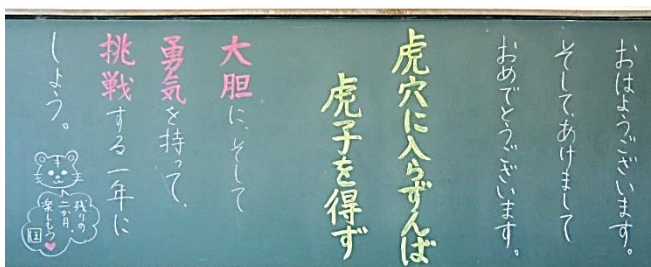 おはようございます。
そして、あけまして
おめでとうございます。
虎穴に入らずんば
虎子を得ず
大胆に、そして
勇気を持って、
挑戦する一年に
しよう。
残りの
二か月、
楽しもう